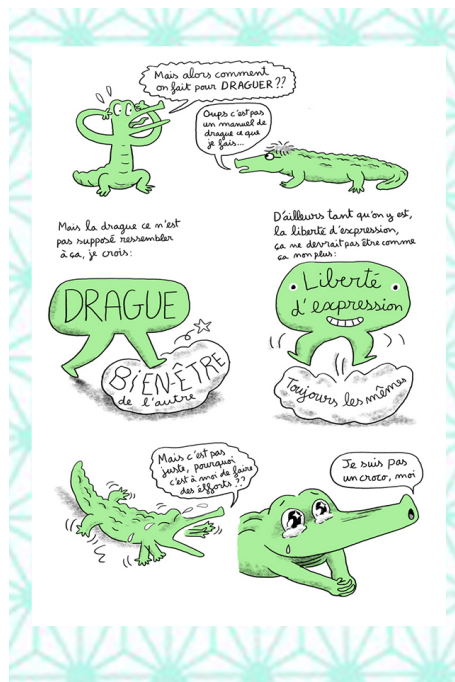 Mais alors comment
on fait pour DRAGUER ??
Oups c'est pas
un manuel de
drague ce que
je fais...
Mais la drague ce m'est
pas supposé ressembler
à ça, je crois :
D'ailleurs tant qu'on y est,
la liberté d'expression,
ça me devrait pas être comme
ça non plus :
DRAGUE
BIEN-ÊTRE
de l'autre
Liberté
d'expression
Toujours les mêmes
Mais c'est pas
juste, pourquoi
c'est à moi de faire
des éfforts ??
Je suis pas
un croco, moi